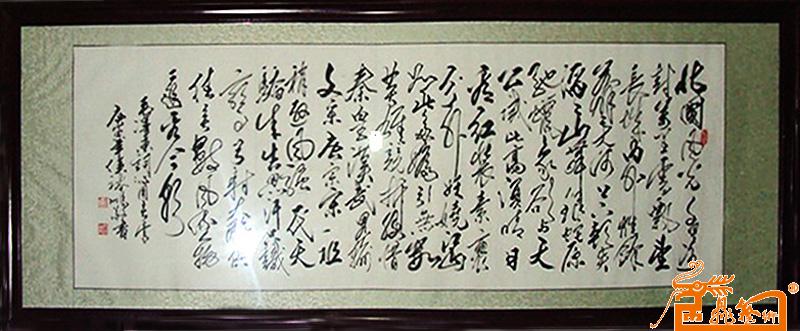 北国风光千里冰
封万里雪飘望
长城内外惟余
莽莽大河上下顿失
滔滔山舞银蛇原
驰蜡象欲与天
公试比高须晴日
看红装素裹
分外妖娆江山
如此多娇引无数
英雄竞折腰惜
秦皇汉武略输
文采唐宗宋祖
稍逊风骚一代天
骄成吉思汗只识
弯弓射大雕俱
往矣数风流人物
还看今朝
毛泽东词沁园春雪